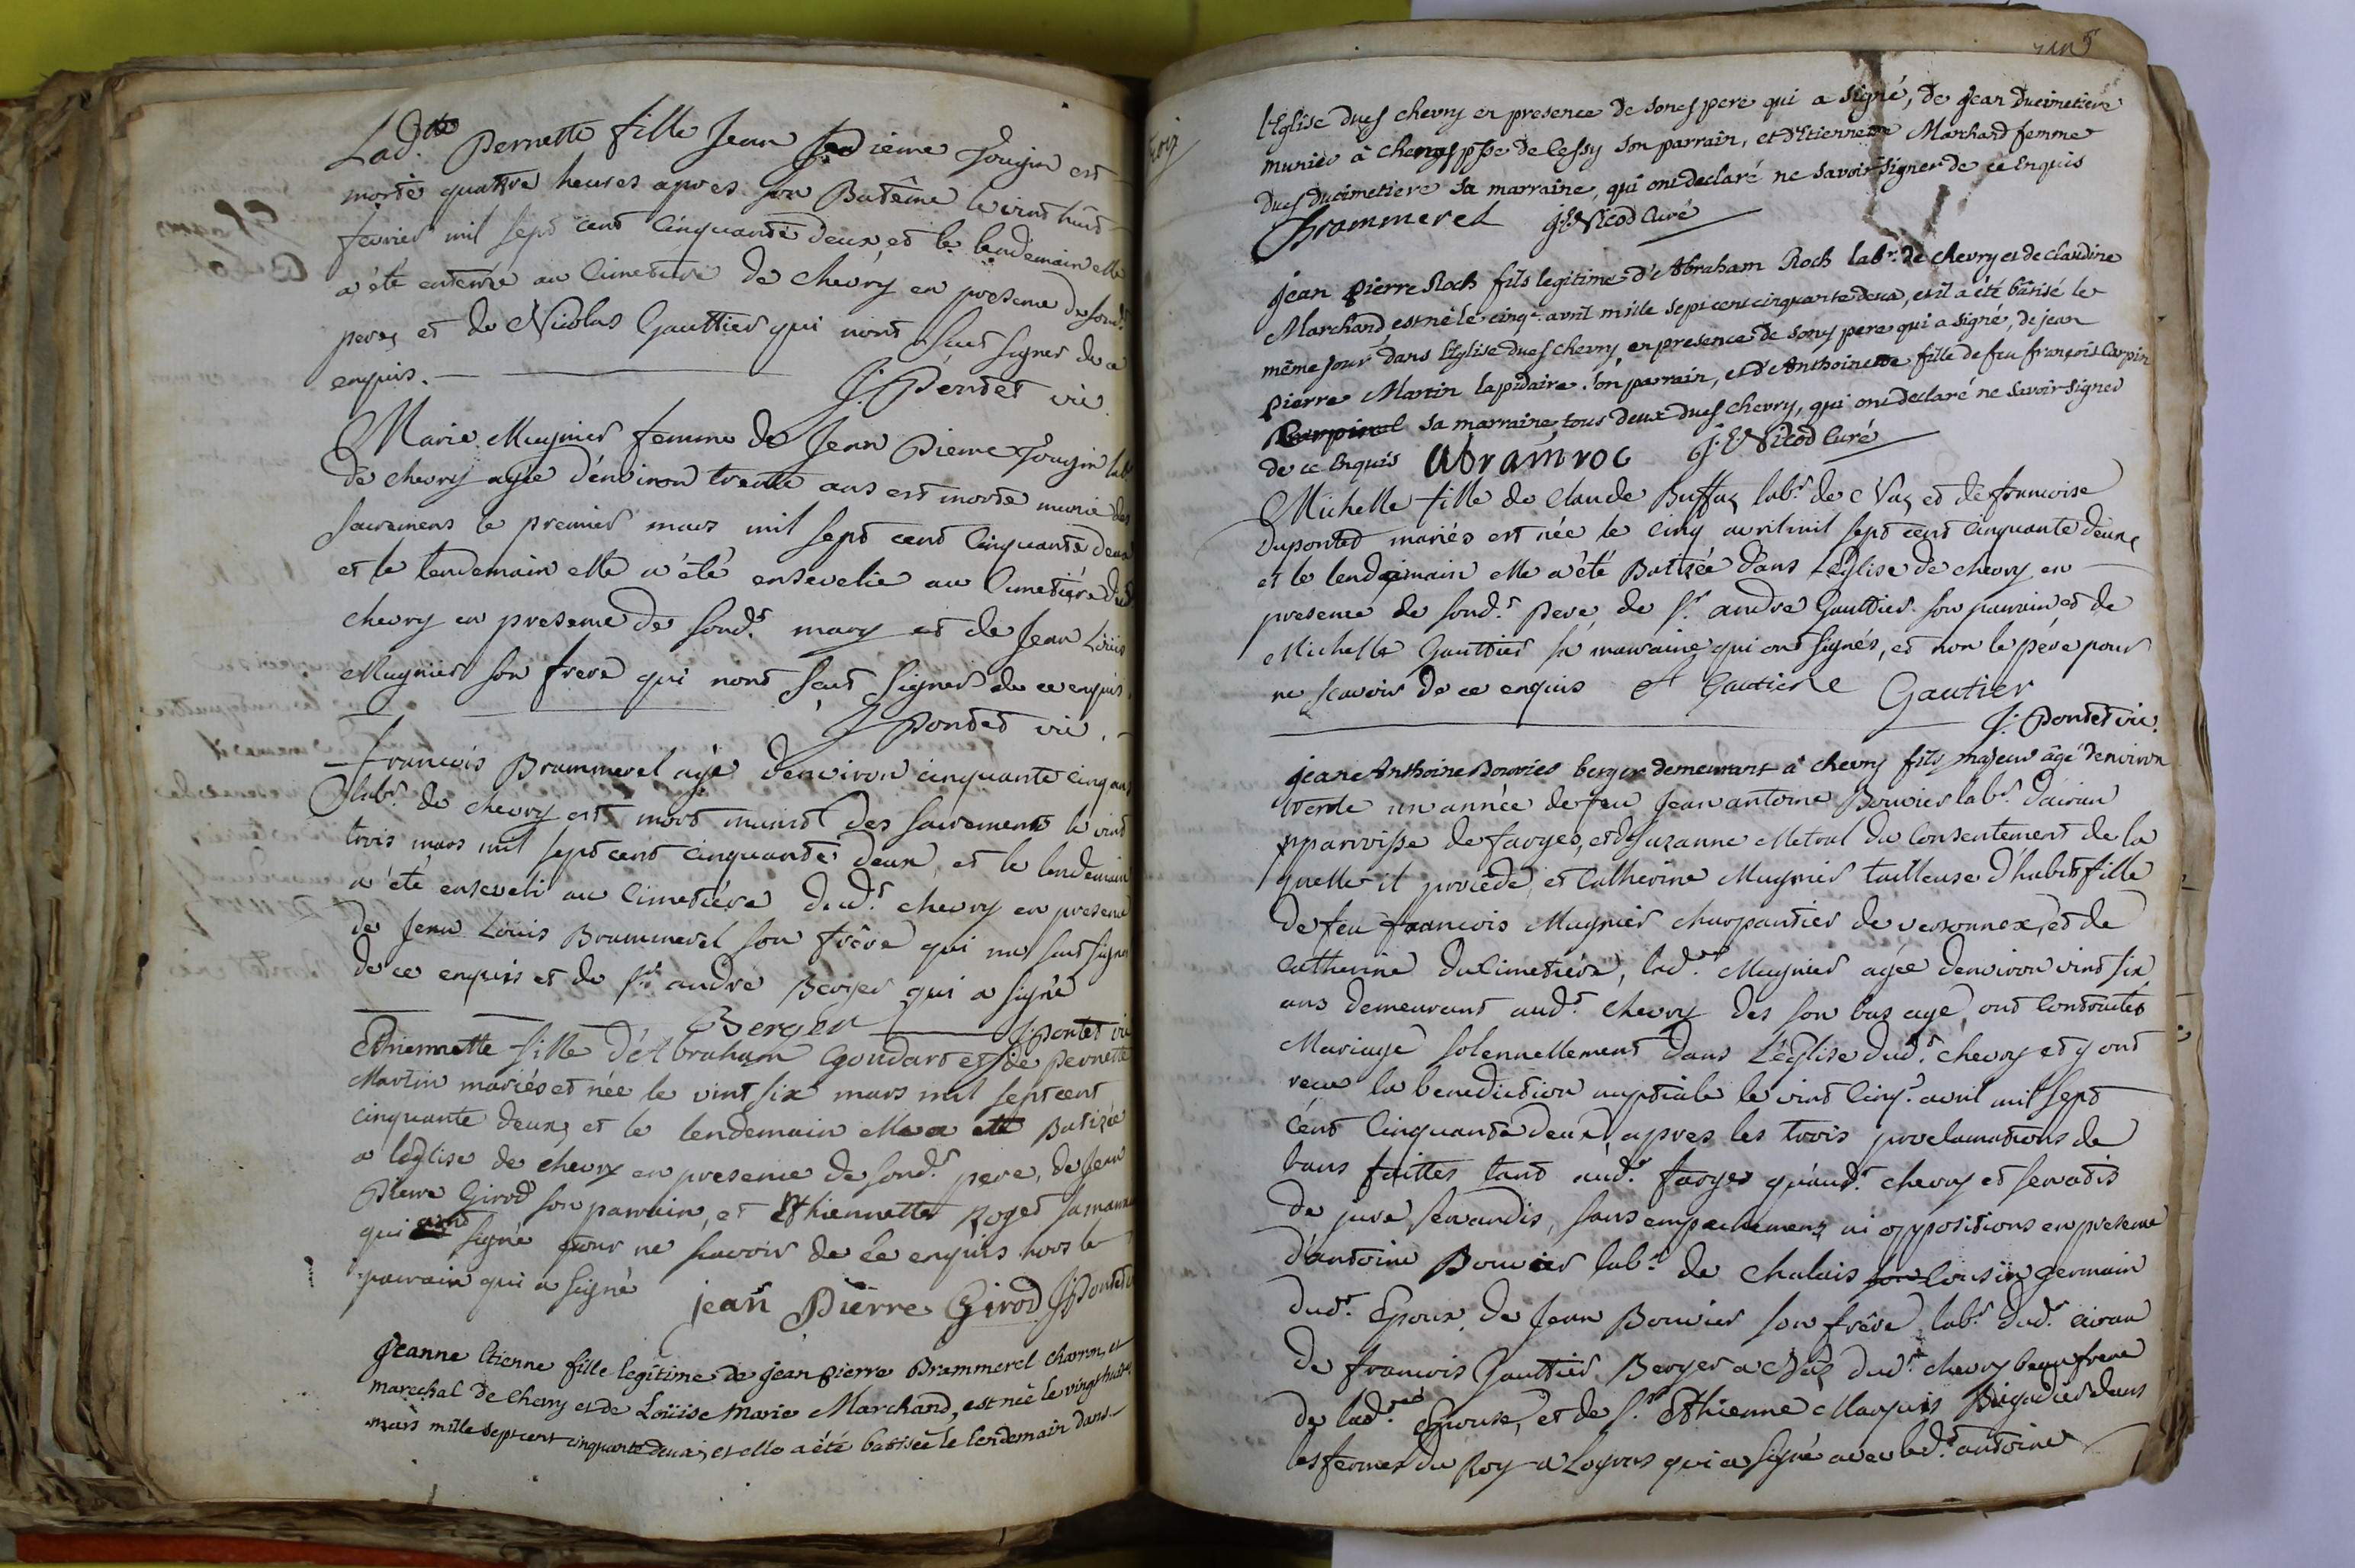 Lad.tte Pernette fille Jean Pierre Jougin est
morte quattre heures apres son Batême le vint huit
fevrier mil sept cent cinquante deux, et le lendemain elle
a été enterrée au Cimetiere de chevry en presence de sond.t
pere, et de Nicolas Gauttier qui n'ont sçut signer de ce
enquis. J: Pontet vic.
Marie Mugnier femme de Jean Pierre Jougin lab.r
de chevry agée d'environ trente ans est morte munie des
sacremens le premier mars mil sept cent cinquante deux
et le lendemain elle a été ensevelie au Cimetiére dud.t
chevry en presence de sond.t mary et de Jean Loüis
Mugnier son frere qui n'ont sçut signer de ce enquis.
J: Pontet vic.
Francois Brammerel agé d'environ cinquante cinq ans
lab.r de chevry est mort munit des sacremens le vint
trois mars mil sept cent cinquante deux, et le lendemain
a été enseveli au Cimetiére dud.t chevry en presence
de Jean Loüis Brammerel son frére qui n'a sçut signer
de ce enquis et de S.r andré Berger qui a signé
Berger J: Pontet vic
Ethiennette fille d'Abraham Goudard et de Pernette
Martin mariés est née le vint six mars mil sept cent
cinquante deux, et le lendemain elle a été Batizée
a léglise de chevry en presence de sond.t pere, de Jean
Pierre Girod son parrain, et Ethiennette Roget sa marraine
qui ont signé pour ne scavoir de ce enquis hors le
parrain qui a signé jean Pierre Girod J: Pontet v
Jeanne Etienne fille legitime de jean pierre Brammerel charron, et
marechal de Chevry et de Loüise Marie Marchand, est née le vingt huit
mars mille sept cent cinquante deux, et elle a été batisée le lendemain dans
l'Eglise dud chevry en presence de sond pere qui a signé, de jean ducimetiere
munier à chenaz psse de Cessy son parrain, et d'Etiennette Marchand femme
dud ducimetiere sa marraine, qui ont declaré ne savoir signer de ce Enquis
Brammerel J:E:Nicod Curé
jean pierre Roch fils legitime d'Abraham Roch lab.r de chevry et de claudine
Marchand, est né le cinq.e avril mille sept cent cinquante deux, et il a été bâtisé le
même jour dans l'Eglise dud chevry, en presence de sond pere qui a signé, de jean
pierre Martin lapidaire son parrain, et d'Anthoinette fille de feu françois Carpin
sa marraine, tous deux dud chevry, qui ont declaré ne savoir signer
de ce Enquis Abram roc J:E:Nicod Curé
Michelle fille de Claude Buffaz lab.r de Naz et de francoise
Dupontet mariés est née le cinq avril mil sept cent cinquante deux,
et le lendemain elle a été Batizée dans L'église de chevry en
presence de sond.t pere, de S.r andre Gauttier son parrain et de
Michelle Gauttier sa marraine qui ont signés, et non le pére pour
ne scavoir de ce enquis A Gautier Gautier
J: Pontet vic.
jean Anthoine Bouvier berger demeurant à chevry fils majeur âgé d'environ
trente un année de feu Jean antoine Bouvier lab.r d'airan
parroisse de farges, et de Suzanne Metral du consentement de la
quelle il procéde, et Catherine Mugnier tailleuse d'habit fille
de feu francois Mugnier charpantier de versonnex, et de
Catherine Ducimetiére, lad.te Mugnier agée d'environ vint six
ans demeurant aud.t chevry des son bas age, ont contractés
Mariage solennellement dans L'église dud.t chevry et y ont
recu la benediction nuptiale le vint cinq.e avril mil sept
cent cinquante deux, apres les trois proclamations de
bans faittes tant aud.t farges qu'aud.t chevry et servatis
de jure servandis, sans empechemens ni oppositions en presence
d'antoine Bouvier lab.r de Chalais son cousin germain
dud.t Epoux, de Jean Bouvier son frére lab.r dud.t airan
de francois Gauttier Berger a Naz dud.t chevry beau frere
de lad.te Epouse, et de S.r Ethienne Marquis Brigadier dans
les fermes du Roy a Logras qui a signé avec led.t antoine